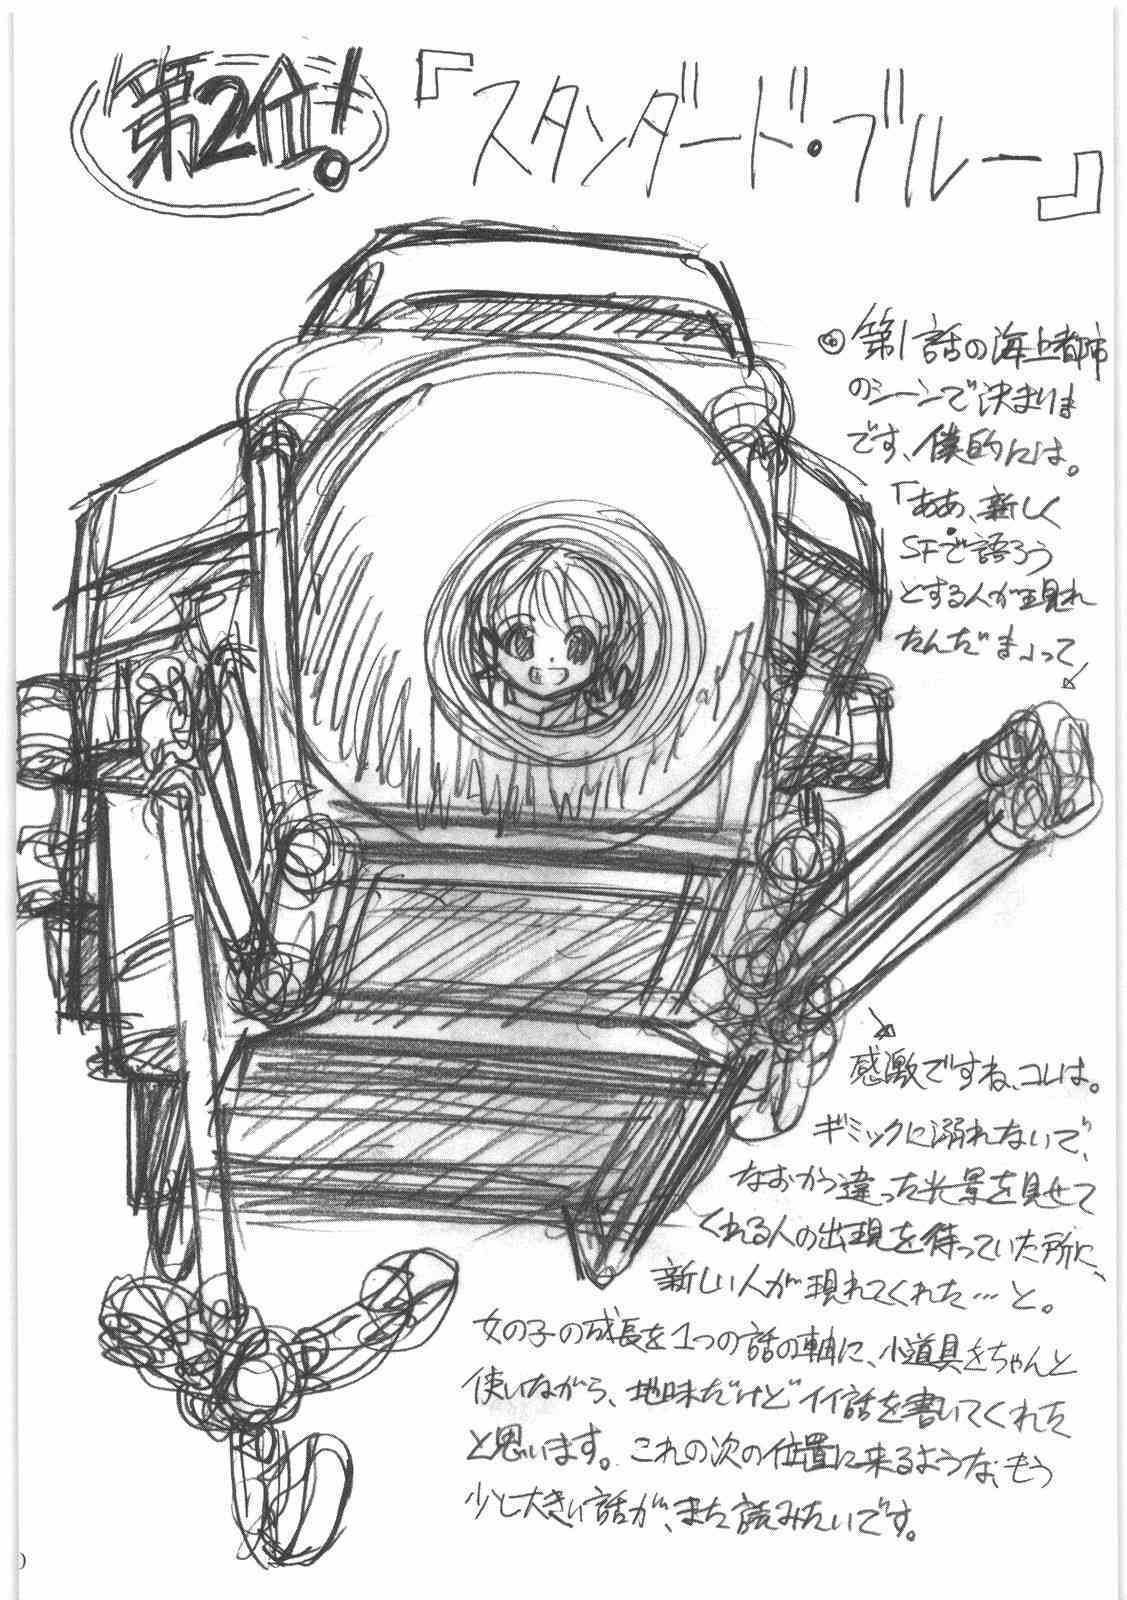 第2位!
『スタンダード・ブルー』
◎第1話の海上都市
のシーンで決まりま
です、僕的には。
「ああ、新しく
SFで語ろう
とする人が現れ
たんだなぁ」って
感激ですね、コレは。
ギミックに溺れないで、
なおかつ違った光景を見せて
くれる人の出現を待っていた所に、
新しい人が現れてくれた…と。
女の子の成長を1つの話の軸に、小道具をちゃんと
使いながら、地味だけどイイ話を書いてくれた
と思います。これの次の位置に来るような、もう
少し大きい話が、また読みたいです。